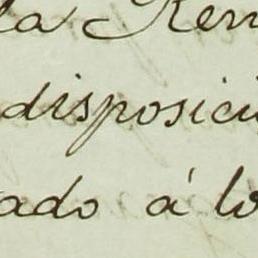 la Ren
disposici
ado á lo